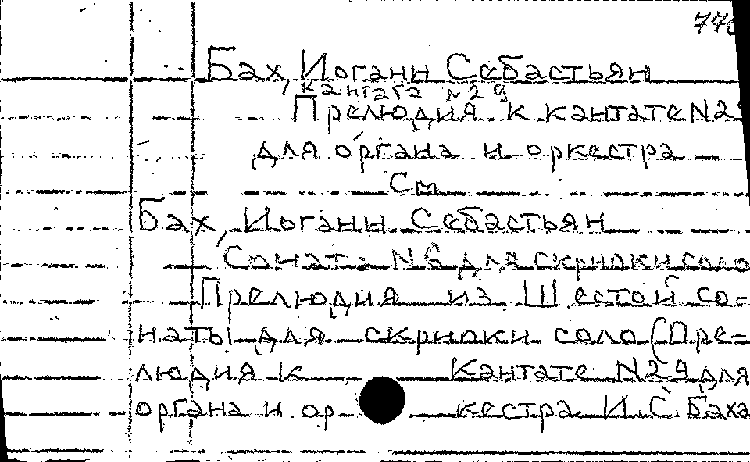 Бах, Иоганн Себастьян
кантата №29
Прелюдия к кантате N29
для органа и оркестра
См
Бах, Иоганн Себастьян
Сонат. N6 для скрипки соло
Прелюдия из Шестой со-
наты для скрипки соло (Пре=
людия к Кантате N29 для
органа и оркестра И.С Баха